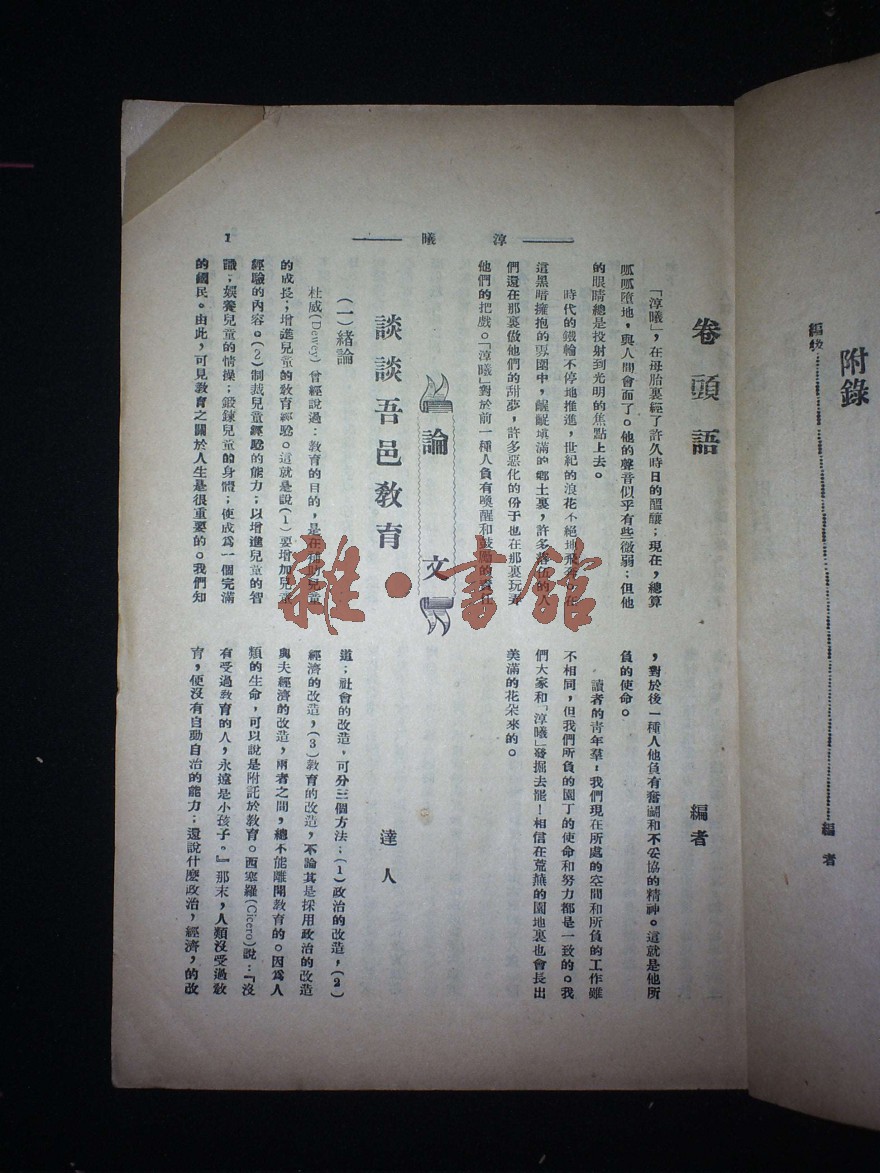 附錄
編後……………………………編者
卷頭語
編者
「淳曦」,在母胎裏經了許久時日的醞釀;現在,總算
呱呱墮地,與人間會面了。他的聲音似乎有些微弱;但他
的眼睛總是投射到光明的焦點上去。
時代的鐵輪不停地推進,世紀的浪花不絕地飛奔。在
這黑暗擁抱的氛圍中,齷齪填滿的鄉土裏,許多落伍的人
們還在那裏做他們的甜夢,許多惡化的份子也在那裏玩弄
他們的把戲。「淳曦」對於前一種人負有喚醒和鼓勵的責任
,對於後一種人他負有奮鬭和不妥協的精神。這就是他所
負的使命。
讀者的青年羣:我們現在所處的空間和所負的工作雖
不相同,但我們所負的園丁的使命和努力都是一致的。我
們大家和「淳曦」發掘去罷!相信在荒蕪的園地裏也會長出
美滿的花朵來的。
淳曦
論文
談談吾邑教育
達人
(一)緒論
杜威(Dewey)曾經說過:教育的目的,是在幫助兒童
的成長;增進兒童的教育經驗。這就是說(1)要增加兒童
經驗的內容。(2)制裁兒童經驗的能力;以增進兒童的智
識;娛養兒童的情操;鍛鍊兒童的身體;使成爲一個完滿
的國民。由此,可見教育之關於人生是很重要的。我們知
道:社會的改造,可分三個方法:(1)政治的改造,(2)
經濟的改造,(3)教育的改造,不論其是採用政治的改造
與夫經濟的改造,兩者之間,總不能離開教育的。因爲人
類的生命,可以說是附託於教育。西塞羅(Cicero)說:『沒
有受過教育的人,永遠是小孩子。』那末,人類沒受過教
育,便沒有自動自治的能力;還說什麽政治,經濟,的改
1
雜·書館